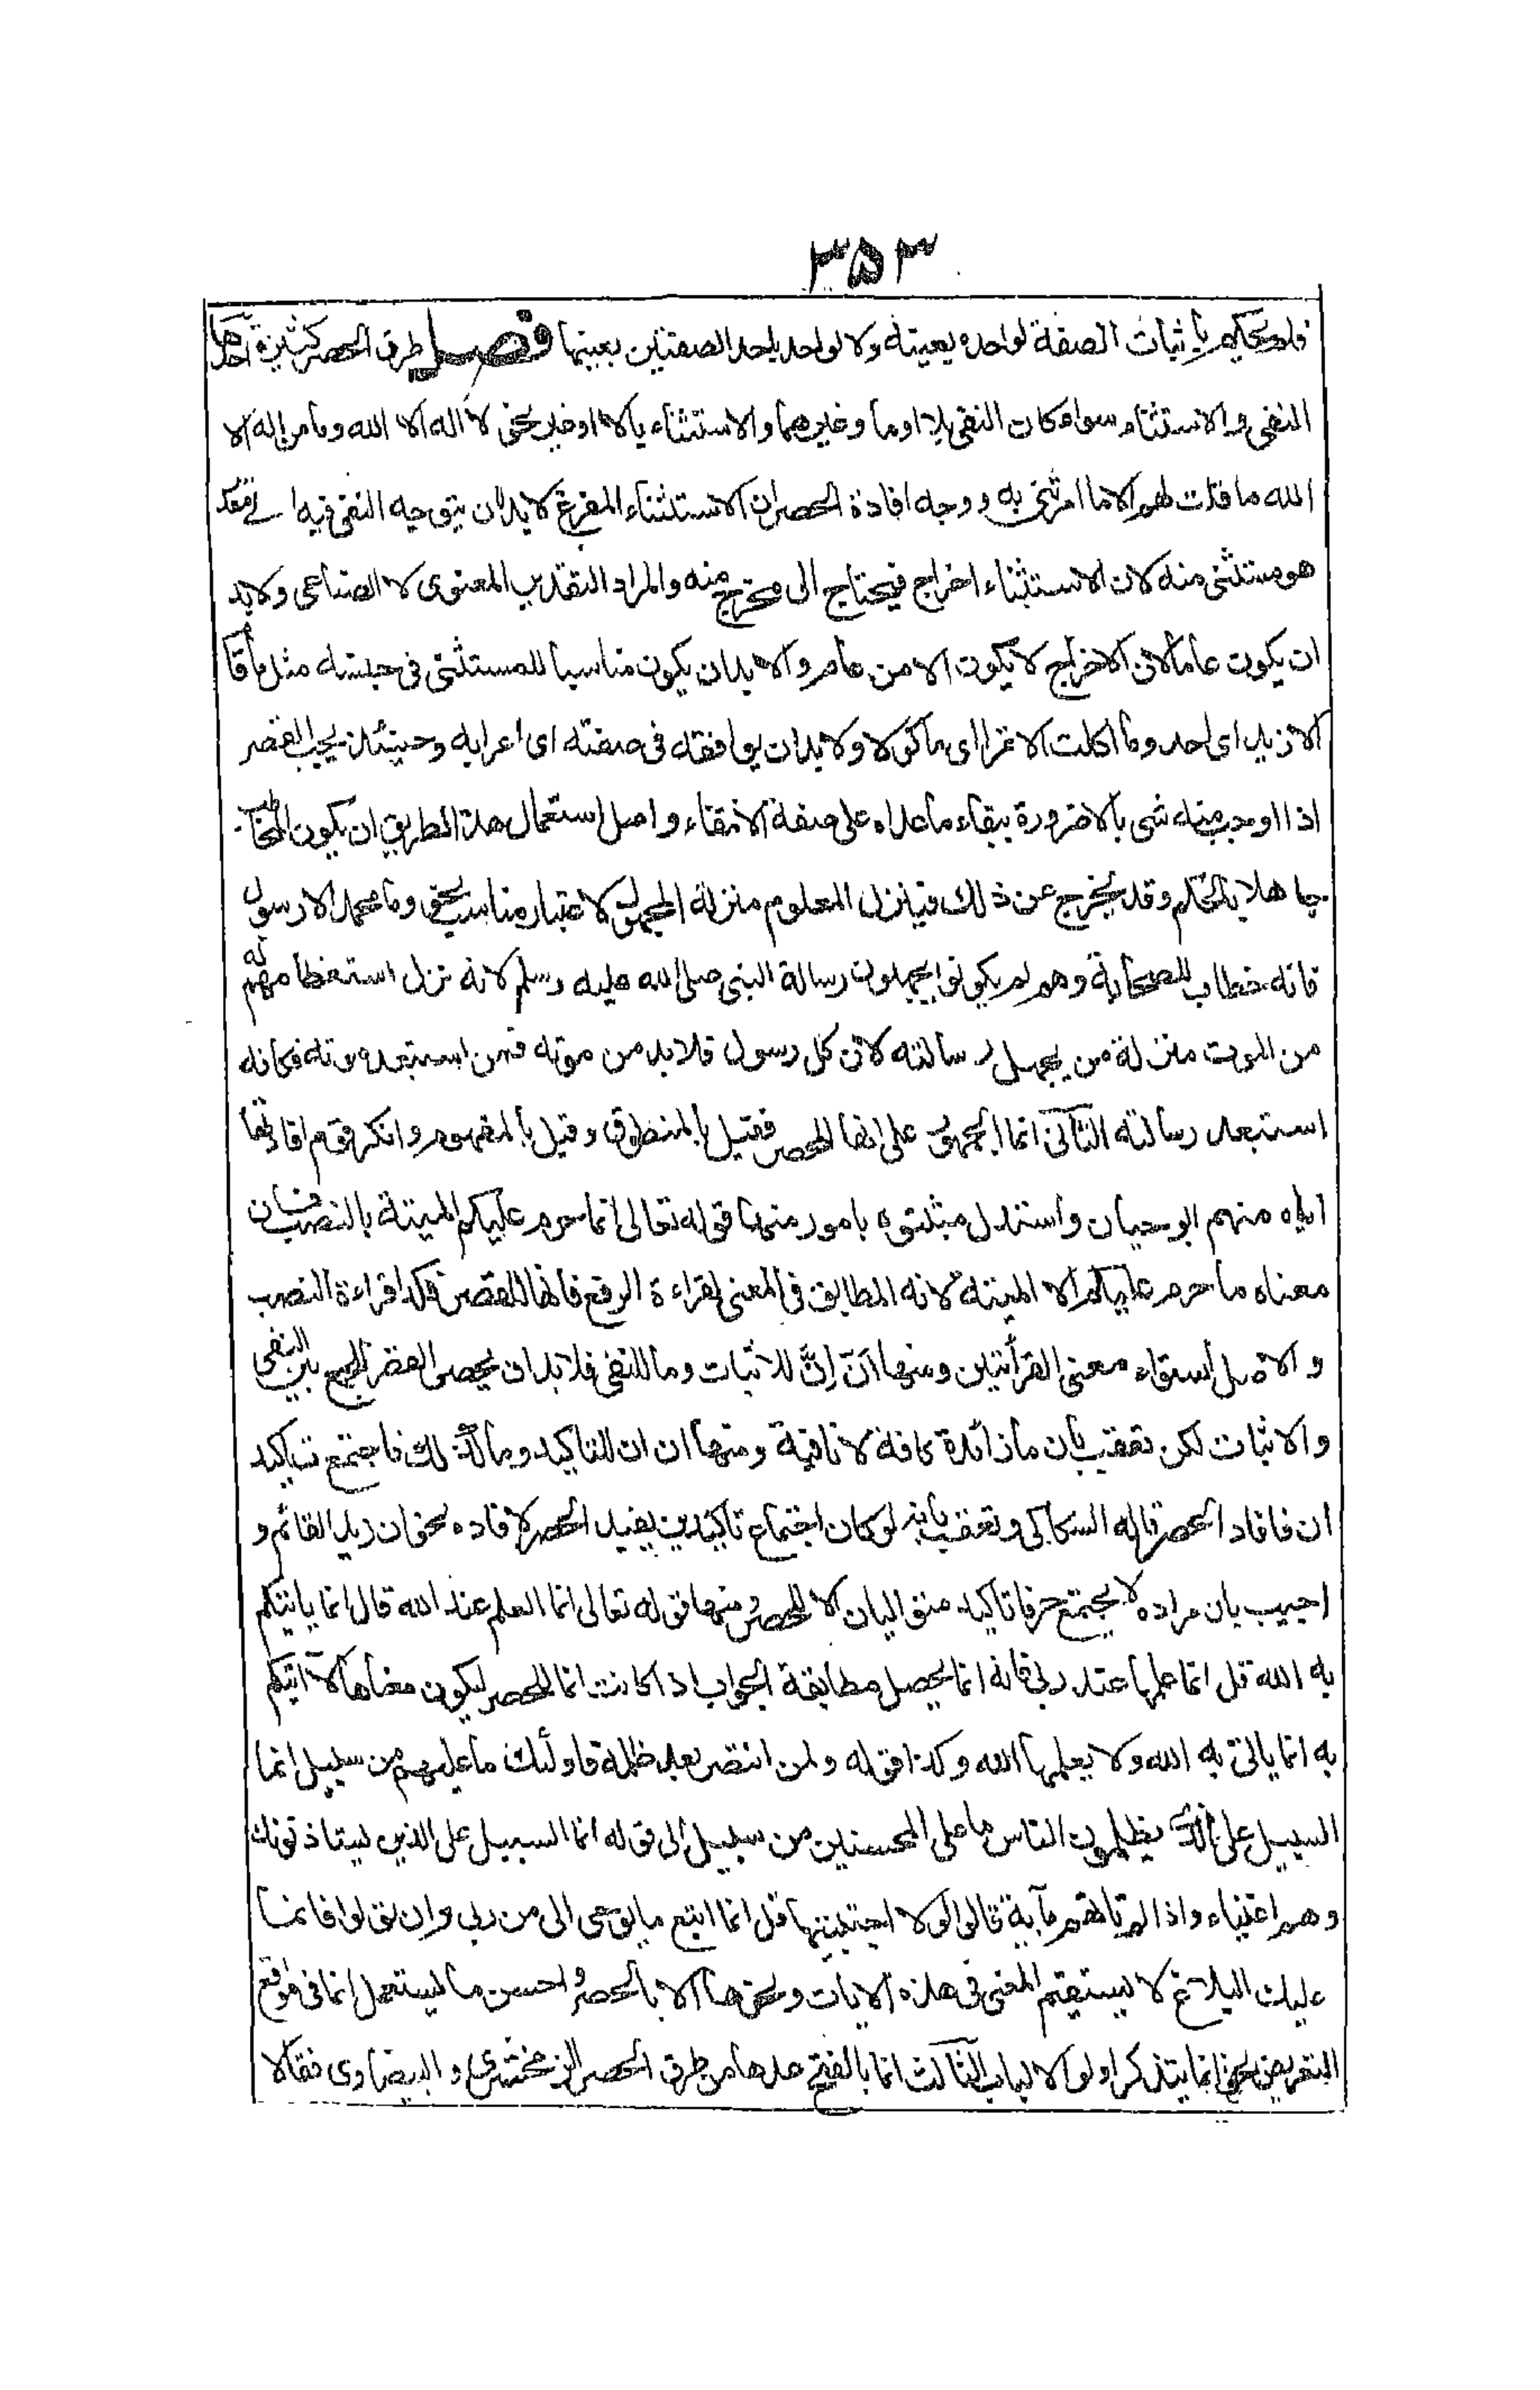 ٣٥٣
فلا يحكم باثبات الصفة لواحد بعينه ولا لواحد باحد الصفتين بعينها فصل طرق الحصر كثيرة احدها
النفى والاستثناء سواء كان النفى بلا او ما وغيرهما والاستثناء بالا او غير نحو لا اله الا الله وما من اله الا
الله ما قلت لهم الا ما امرتنى به ووجه افادة الحصر ان الاستثناء المفرغ لا بد ان يتوجه النفى فيه الى مقدر
هو مستثنى منه لان الاستثناء اخراج فيحتاج الى مخرج منه والمراد التقدير المعنوى لا الصناعى ولا بد
ان يكون عاما لان الاخراج لا يكون الا من عام ولا بد ان يكون مناسبا للمستثنى فى جنسه مثل ما قا
الا زيد اى احد وما اكلت الا تمرا اى ماكولا ولا بد ان يوافقه فى صفته اى اعرابه وحينئذ يجب القصر
اذا اوجب منه شى بالا ضرورة ببقاء ما عداه على صفة الانتفاء واصل استعمال هذا الطريق ان يكون المخاطب
جاهلا بالحكم وقد يخرج عن ذلك فينزل المعلوم منزلة المجهول لاعتبار مناسب نحو وما محمد الا رسول
فانه خطاب للصحابة وهم لم يكونوا يجهلون رسالة النبى صلى الله عليه وسلم لانه نزل استعظامهم له
من الموت منزلة من يجهل رسالته لان كل رسول فلا بد من موته فمن استبعد موته فكانه
استبعد رسالته الثانى انما الجمهور على انها للحصر فقيل بالمنطوق وقيل بالمفهوم وانكر قوم افادتها
اياه منهم ابو حيان واستدل مثبتوه بامور منها قوله تعالى انما حرم عليكم الميتة بالنصب فان
معناه ما حرم عليكم الا الميتة لانه المطابق فى المعنى لقراءة الرفع فانها للقصر فكذا قراءة النصب
والاصل استواء معنى القرأتين ومنها انّ إنّ للاثبات وما للنفى فلا بد ان يحصل القصر للجمع بين النفى
والاثبات لكن تعقب بان ما زائدة كافة لا نافية ومنها ان ان للتاكيد وما كذلك فاجتمع تاكيد
ان فافاد الحصر قاله السكاكى وتعقب بانه لو كان اجتماع تاكيدين يفيد الحصر لافاده نحو ان زيد القائم و
اجيب بان مراده لا يجتمع حرفا تاكيد متواليان الا للحصر ومنها قوله تعالى انما العلم عند الله قال انما ياتيكم
به الله قل انما علمها عند ربى فانه انما يحصل مطابقة الجواب اذا كانت انما للحصر ليكون معناها لا آتيكم
به انما ياتى به الله ولا يعلمها الله وكذا قوله ولمن انتصر بعد ظلمه فاولئك ما عليهم من سبيل انما
السبيل على الذين يظلمون الناس ما على المحسنين من سبيل الى قوله انما السبيل على الذين يستاذنونك
وهم اغنياء واذا لم تاتهم بآية قالوا لولا اجتبيتها قل انما اتبع ما يوحى الى من ربى وان تولوا فانما
عليك البلاغ لا يستقيم المعنى فى هذه الايات ونحوها الا بالحصر واحسن ما يستعمل انما فى مواقع
التعريض نحو انما يتذكر اولوا الالباب الثالث انما بالفتح عدها من طرق الحصر الزمخشرى والبيضاوى فقالا